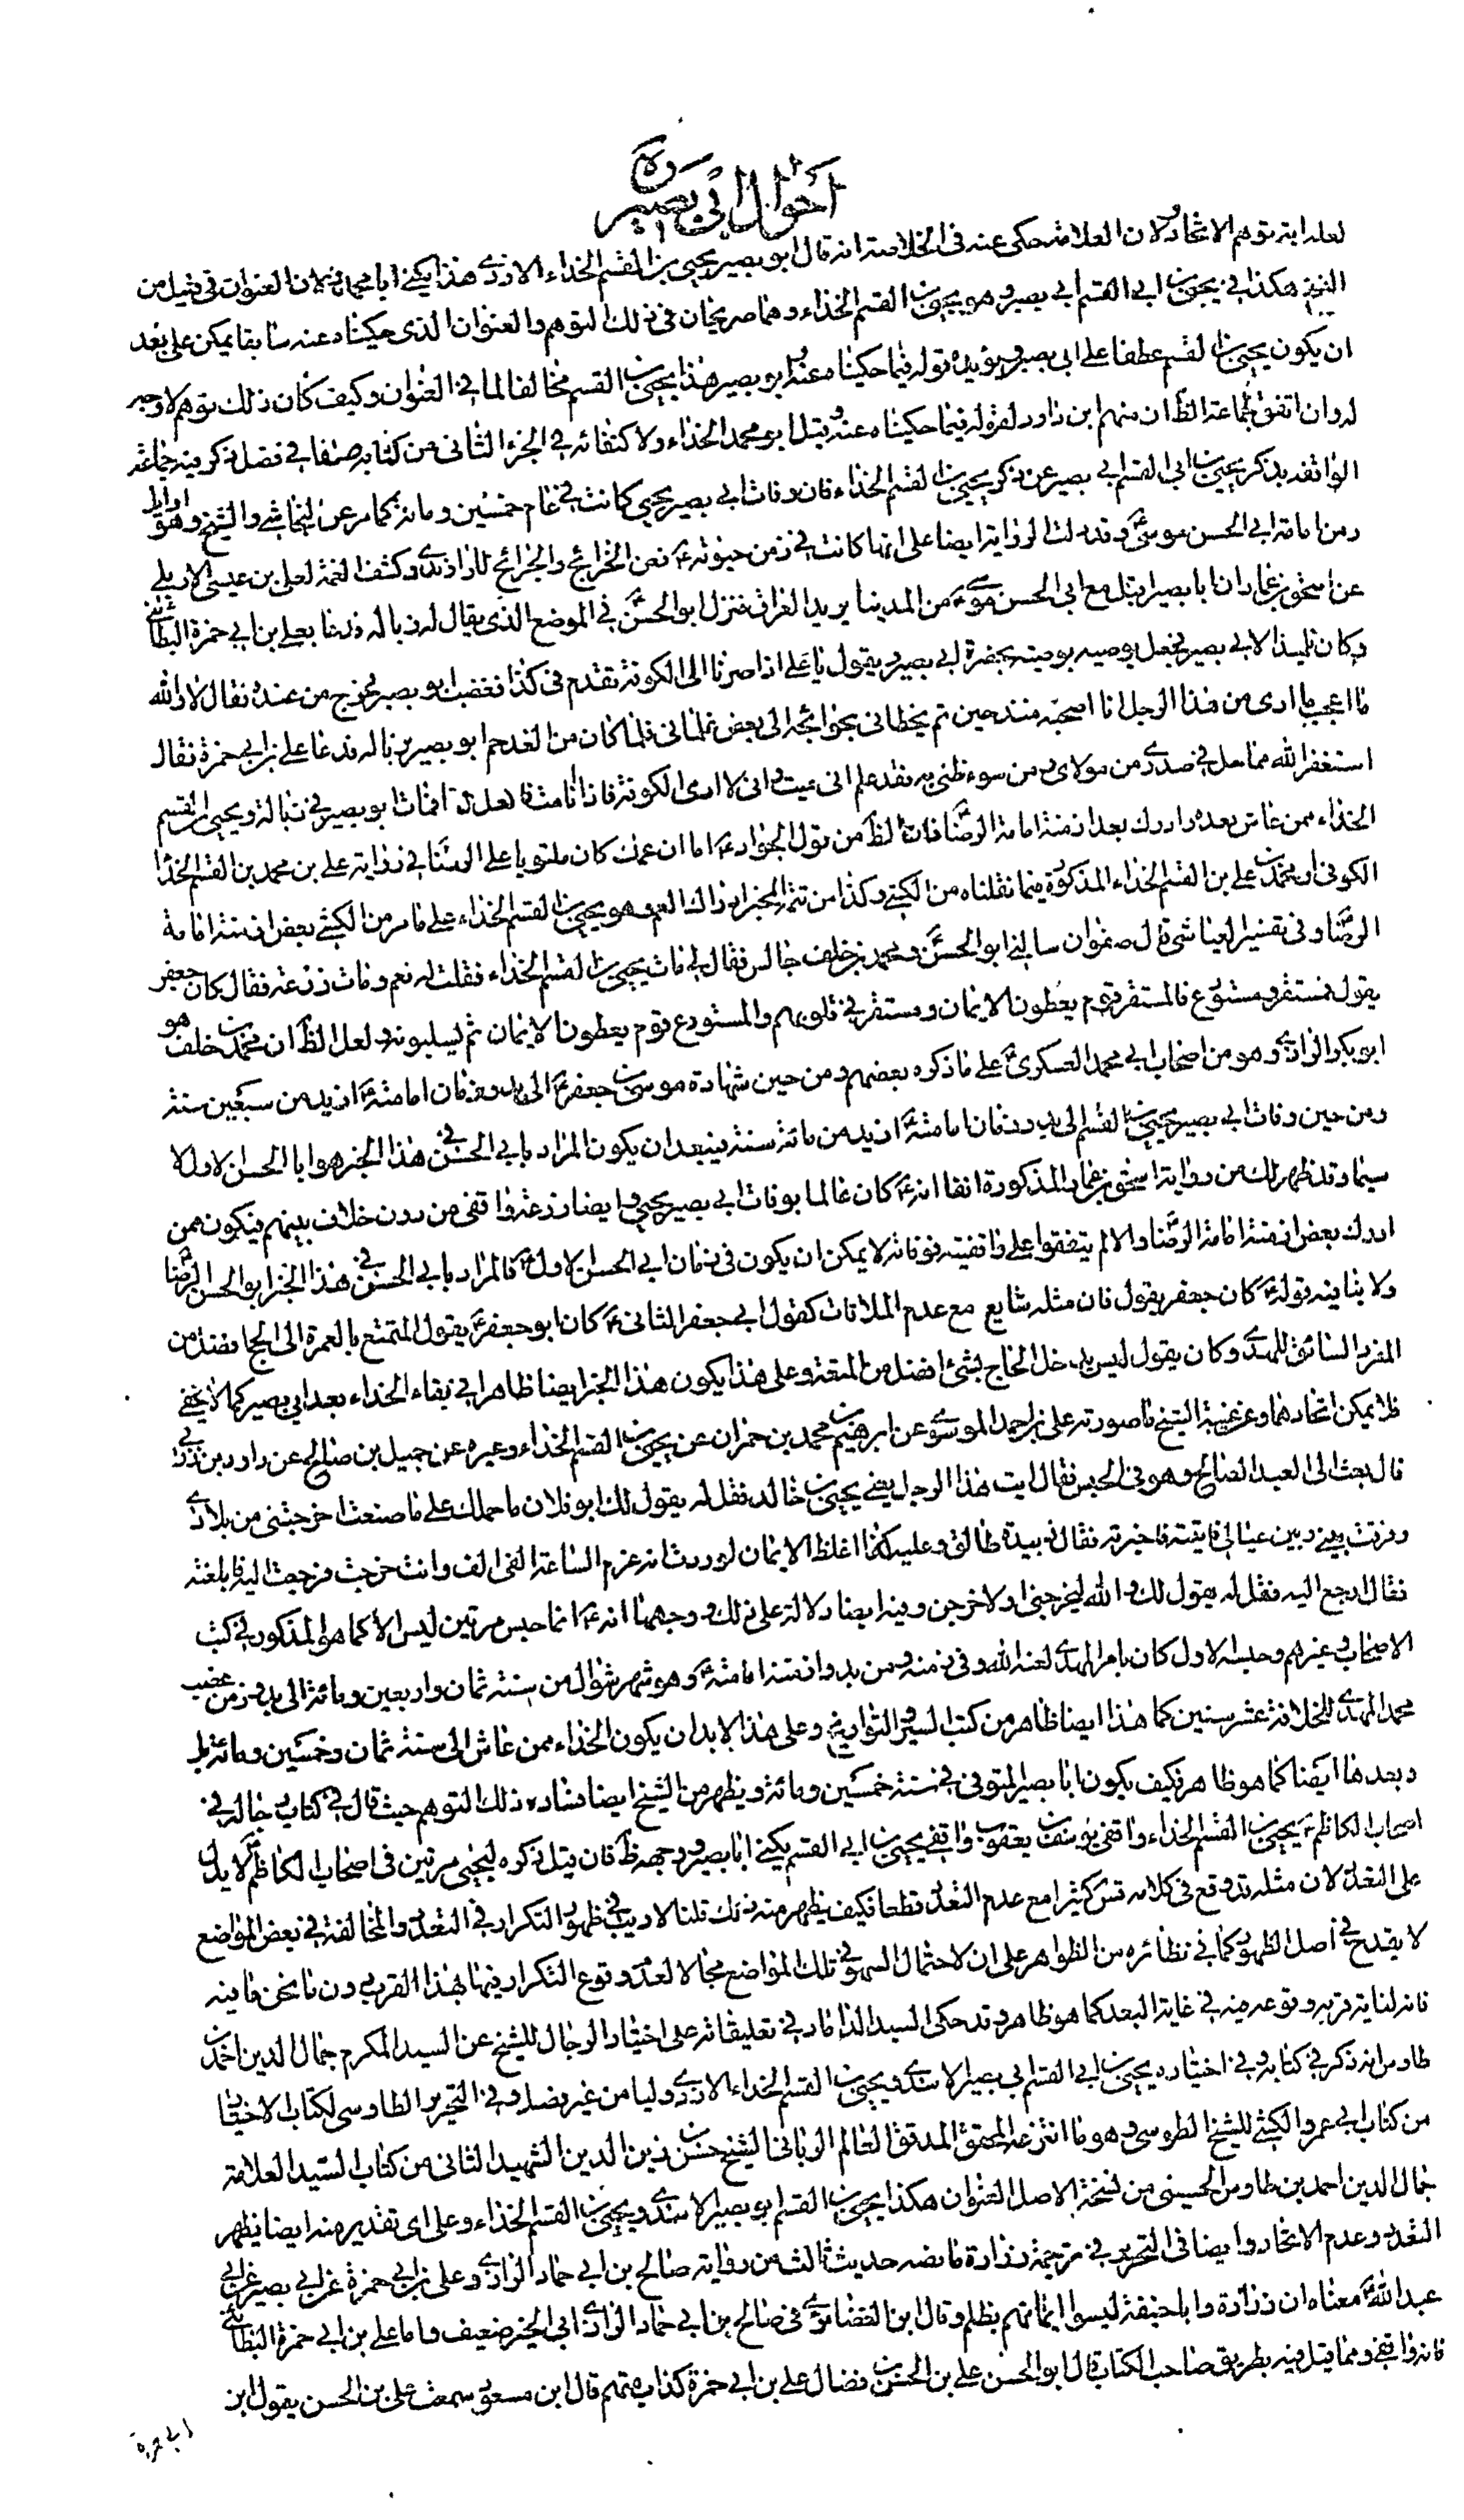 احوال ابى بصير
لعله ابنه توهم الاتحاد لان العلامة حكى عنه فى الخلاصة انه قال ابو بصير يحيى بن القسم الحذاء الازدى هذا يكنى ابا محمد لان العنوان فى قليل من
النسخ هكذا فى يحيى بن ابى القسم ابى بصير وهو يحيى بن القسم الحذاء وهما صريحان فى ذلك التوهم والعنوان الذى حكيناه عنه سابقا يمكن على بعد
ان يكون يحيى بن القسم عطفا على ابى بصير ويؤيده قوله فيما حكيناه عنه ابو بصير هذا يحيى بن القسم مخالفا لما فى العنوان وكيف كان ذلك توهم لا وجه
له وان اتفق لجماعة الظ ان منهم ابن داود لقوله فيما حكيناه عنه وقيل ابو محمد الحذاء ولاكتفائه فى الجزء الثانى من كتابه صنفا فى فصل ذكر فيه جماعة
الواقفة بذكر يحيى بن ابى القسم ابى بصير عن ذكر يحيى بن القسم الحذاء فان وفات ابى بصير يحيى كانت فى عام خمسين ومائة كما مر عن النجاشى والشيخ وهو اواسط
زمن امامة ابى الحسن موسى ع وقد دلت الرواية ايضا على انها كانت فى زمن حيوته ع فعن الخرائج والجرائح للراوندى وكشف الغمة لعلى بن عيسى الاربلى
عن اسحق بن عمار ان ابا بصير اقبل مع ابى الحسن موسى ع من المدينة يريد العراق فنزل ابو الحسن ع فى الموضع الذى يقال له زبالة فدعا بعلى بن ابى حمزة البطائنى
وكان تلميذا لابى بصير فجعل يوصيه بوصيته بحضرة ابى بصير ويقول يا على اذا صرنا الى الكوفة تقدم فى كذا فغضب ابو بصير فخرج من عنده فقال لا والله
ما اعجب ما ارى من هذا الرجل انا اصحبه منذ حين ثم يخطانى بحوائجه الى بعض غلمانى فلما كان من الغد حم ابو بصير بزبالة فدعا على بن ابى حمزة فقال
استغفر الله مما حل فى صدرى من مولاى ومن سوء ظنى به فقد علم انى ميت وانى لا ارى الكوفة فاذا انا مت فافعل كذا فمات ابو بصير فى زبالة ويحيى بن القسم
الحذاء ممن عاش بعده وادرك بعد ازمنة امامة الرضا ع فان الظ من قول الجواد ع اما ان عمك كان ملتويا على الرضا ع فى رواية على بن محمد بن القسم الحذاء
الكوفى او محمد بن على بن القسم الحذاء المذكورة فيما نقلناه من الكشى وكذا من تتمة الخبر ان ذاك العم وهو يحيى بن القسم الحذاء على ما مر من الكشى بعض ازمنة امامة
الرضا ع وفى تفسير العياشى قال صفوان سالنى ابو الحسن ع ومحمد بن خلف جالس فقال لى مات يحيى بن القسم الحذاء فقلت له نعم ومات زرعة فقال كان جعفر
يقول فمستقر ومستودع فالمستقر قوم يعطون الايمان ومستقر فى قلوبهم والمستودع قوم يعطون الايمان ثم يسلبونه ولعل الظ ان محمد بن خلف هو
ابو بكر الرازى وهو من اصحاب ابى محمد العسكرى ع على ما ذكره بعضهم ومن حين شهادة موسى بن جعفر ع الى بدو زمان امامته ع ازيد من سبعين سنة
ومن حين وفات ابى بصير يحيى بن القسم الى بدو زمان امامته ع ازيد من مائة سنة فيبعد ان يكون المراد بابى الحسن فى هذا الخبر هو ابا الحسن الاول لا
سيما وقد ظهر لك من رواية اسحق بن عمار المذكورة انفا انه ع كان عالما بوفات ابى بصير يحيى وايضا زرعة واقفى من دون خلاف بينهم فيكون ممن
ادرك بعض ازمنة امامة الرضا ع والا لم يتفقوا على واقفيته فوفاته لا يمكن ان يكون فى زمان ابى الحسن الاول ع فالمراد بابى الحسن فى هذا الخبر ابو الحسن الرضا ع
ولا ينافيه قوله ع كان جعفر يقول فان مثله شايع مع عدم الملاقات كقول ابى جعفر الثانى ع كان ابو جعفر ع يقول المتمتع بالعمرة الى الحج افضل من
المفرد السائق للهدى وكان يقول ليس يدخل الحاج بشئ افضل من المتعة وعلى هذا يكون هذا الخبر ايضا ظاهرا فى بقاء الحذاء بعد ابى بصير كما لا يخفى
فلا يمكن اتحادهما وعن غيبة الشيخ ما صورته على بن احمد الموسوى عن ابرهيم بن محمد بن حمران عن يحيى بن القسم الحذاء وغيره عن جميل بن صالح عن داود بن زربى
قال بعث الى العبد الصالح وهو فى الحبس فقال ايت هذا الرجل يعنى يحيى بن خالد فقل له يقول لك ابو فلان ما حملك على ما صنعت اخرجتنى من بلادى
وفرقت بينى وبين عيالى فاتيته فاخبرته فقال زبيدة طالق وعليه اغلظ الايمان لوددت انه غرم الساعة الفى الف وانت خرجت فرجعت اليه فابلغته
فقال ارجع اليه فقل له يقول لك والله ليخرجنى او لاخرجن وفيه ايضا دلالة على ذلك وجهها انه ع انما حبس مرتين ليس الا كما هو المذكور فى كتب
الاصحاب وغيرهم وحبسه الاول كان بامر المهدى لعنه الله وفى زمنه ومن بدو ازمنة امامته ع وهو شهر شوال من سنة ثمان واربعين ومائة الى بدو زمن غصب
محمد المهدى للخلافة عشر سنين كما هذا ايضا ظاهر من كتب السير والتواريخ وعلى هذا لابد ان يكون الحذاء ممن عاش الى سنة ثمان وخمسين ومائة بل
وبعدها ايضا كما هو ظاهر فكيف يكون ابا بصير المتوفى فى سنة خمسين ومائة ويظهر من الشيخ ايضا فساد ذلك التوهم حيث قال فى كتاب رجاله فى
اصحاب الكاظم ع يحيى بن القسم الحذاء واقفى يوسف بن يعقوب واقفى يحيى بن ابى القسم يكنى ابا بصير ووجهه ظ فان قيل ذكره ليحيى مرتين فى اصحاب الكاظم ع لا يدل
على التعدد لان مثله قد وقع فى كلامه قس كثيرا مع عدم التعدد قطعا فكيف يظهر منه ذلك قلنا لا ريب فى ظهور التكرار فى التعدد والمخالفة فى بعض المواضع
لا يقدح فى اصل الظهور كما فى نظائره من الظواهر على ان لاحتمال السهو فى تلك المواضع مجالا لعدم وقوع التكرار فيها بهذا القرب دون ما نحن ما فيه
فانه لغاية قربه وقوعه منه فى غاية البعد كما هو ظاهر وقد حكى السيد الداماد فى تعليقاته على اختيار الرجال للشيخ عن السيد المكرم جمال الدين احمد بن
طاوس انه ذكر فى كتابه وفى اختياره يحيى بن ابى القسم ابى بصير الاسدى ويحيى بن القسم الحذاء الازدى وليا من غير فصل وفى التحرير الطاوسى لكتاب الاختيار
من كتاب ابى عمرو الكشى للشيخ الطوسى وهو ما انتزعه المحقق المدقق العالم الربانى الشيخ حسن بن زين الدين الشهيد الثانى من كتاب السيد العلامة
جمال الدين احمد بن طاوس الحسينى من نسخة الاصل العنوان هكذا يحيى بن القسم ابو بصير الاسدى ويحيى بن القسم الحذاء وعلى اى تقدير منه ايضا يظهر
التعدد وعدم الاتحاد وايضا فى التحرير فى ترجمة زرارة ما نصه حديث ثالث من رواية صالح بن ابى حماد الرازى وعلى بن ابى حمزة عن ابى بصير عن ابى
عبد الله ع معناه ان زرارة وابا حنيفة ليسوا ايمانهم بظلم وقال ابن الغضائرى فى صالح بن ابى حماد الرازى ابى الخير ضعيف واما على بن ابى حمزة البطائنى
فانه واقفى ومما قيل فيه بطريق صاحب الكتاب قال ابو الحسن على بن الحسن بن فضال على بن ابى حمزة كذاب متهم قال ابن مسعود سمعت على بن الحسن يقول ابن
ابى حمزة